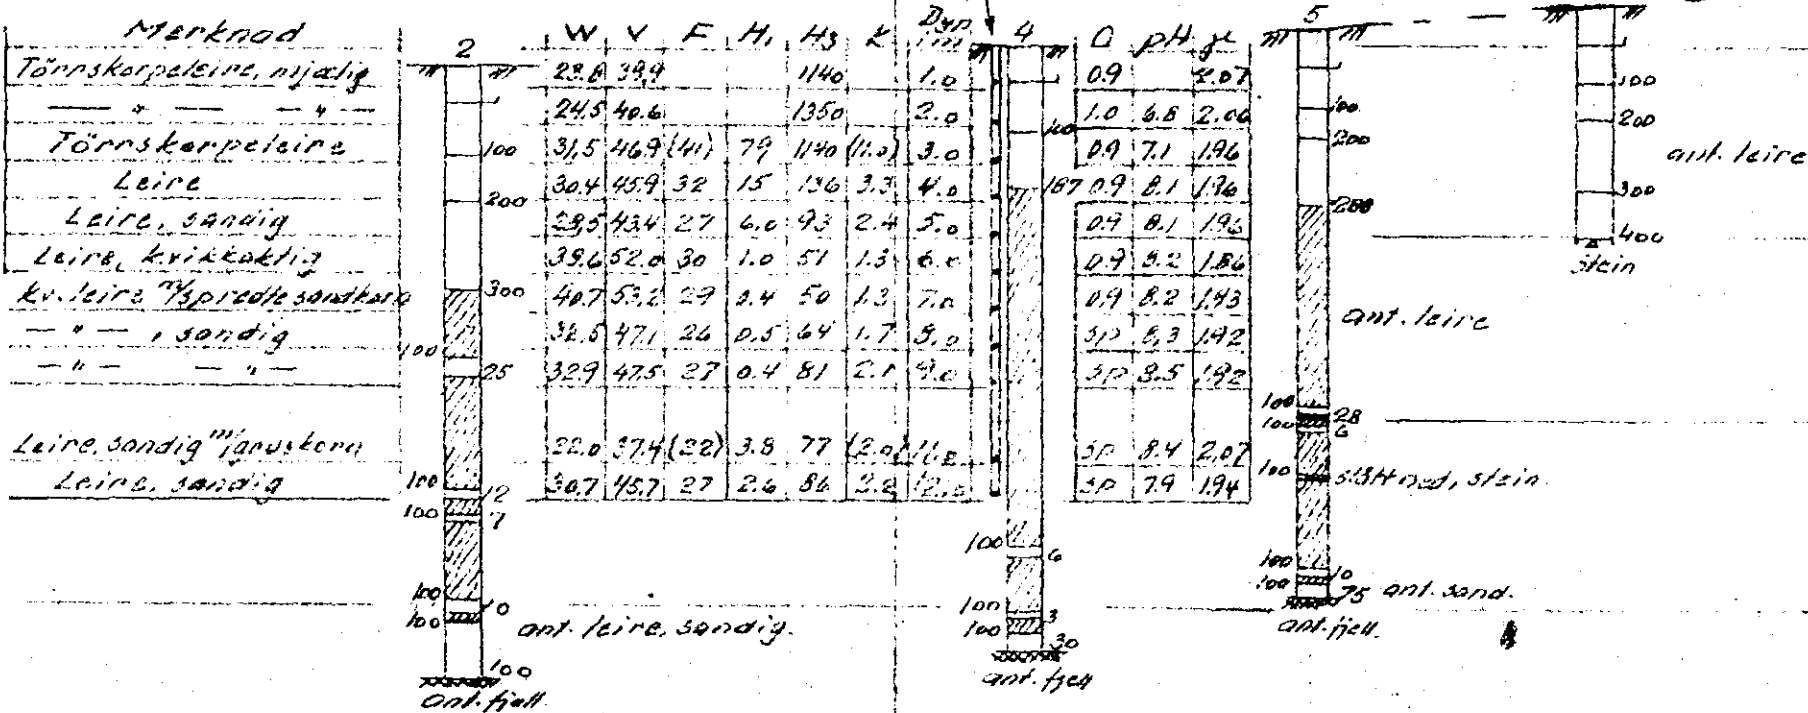 Merknad W V F H₁ H₃ K Dyp i m O pH γ
Törrskorpeleire, mjælig 23.8 39,9 1140 1.0 0.9 2.07
— " — — " — 24,5 40.6 1350 2.0 1.0 6.8 2.06
Törrskorpeleire 31,5 46,9 (41) 79 1140 (11.0) 3.0 0.9 7.1 1.96
Leire 30.4 45.9 32 15 136 3.3 4.0 0.9 8.1 1.96
Leire, sandig 29,5 43.4 27 6.0 93 2.4 5.0 0.9 8.1 1.96
Leire, kvikkaktig 39.6 52.0 30 1.0 51 1.3 6.0 0.9 8.2 1.86
kv. leire m/spredte sandkorn 40.7 53.2 29 0.4 50 1.3 7.0 0.9 8.2 1.83
— " — , sandig 32.5 47.1 26 0.5 64 1.7 8.0 sp 8,3 1.92
— " — — " — 32.9 47.5 27 0.4 81 2.1 9.0 sp 8.5 1.92
Leire, sandig m/gruskorn 22.0 37.4 (22) 3.8 77 (2.0) 11.0 sp 8.4 2.07
Leire, sandig 30.7 45.7 27 2.6 86 2.2 12.0 sp 7.9 1.94
2
100
200
300
100
25
100
12
100
7
100
10
100
ant. leire, sandig.
100
ant. fjell
4
100
187
100
6
100
3
100
30
ant. fjell
5
100
200
288
ant. leire
100
28
100
6
100
slått ned, stein.
100
10
100
75 ant. sand.
ant. fjell.
100
200
ant. leire
300
400
stein